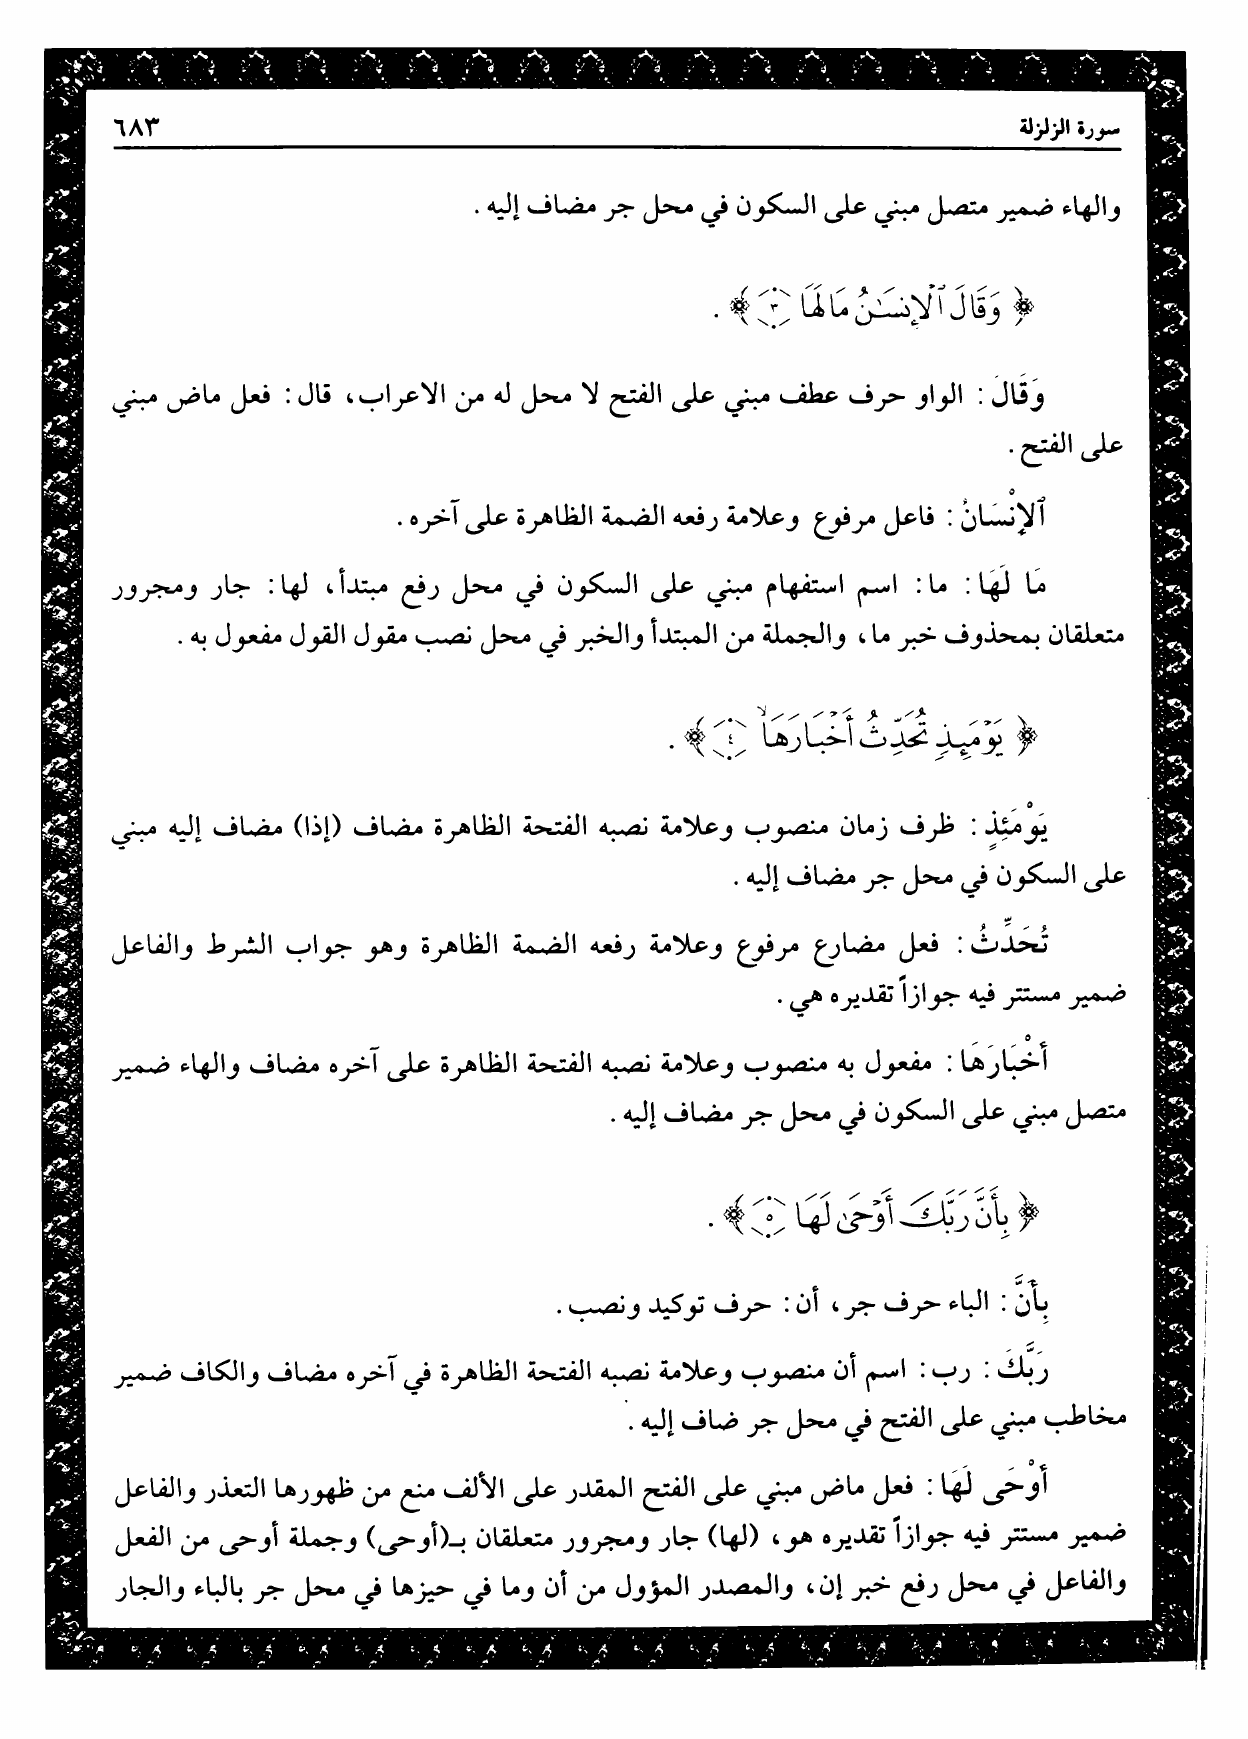 سورة الزلزلة ٦٨٣
والهاء ضمير متصل مبني على السكون في محل جر مضاف إليه .
﴿ وَقَالَ ٱلْإِنسَـٰنُ مَا لَهَا ٣ ﴾ .
وَقَالَ : الواو حرف عطف مبني على الفتح لا محل له من الاعراب، قال : فعل ماض مبني
على الفتح .
ٱلإِنْسَانُ : فاعل مرفوع وعلامة رفعه الضمة الظاهرة على آخره .
مَا لَهَا : ما : اسم استفهام مبني على السكون في محل رفع مبتدأ، لها : جار ومجرور
متعلقان بمحذوف خبر ما، والجملة من المبتدأ والخبر في محل نصب مقول القول مفعول به .
﴿ يَوْمَئِذٍ تُحَدِّثُ أَخْبَارَهَا ۙ ٤ ﴾ .
يَوْمَئِذٍ : ظرف زمان منصوب وعلامة نصبه الفتحة الظاهرة مضاف (إذا) مضاف إليه مبني
على السكون في محل جر مضاف إليه .
تُحَدِّثُ : فعل مضارع مرفوع وعلامة رفعه الضمة الظاهرة وهو جواب الشرط والفاعل
ضمير مستتر فيه جوازاً تقديره هي .
أَخْبَارَهَا : مفعول به منصوب وعلامة نصبه الفتحة الظاهرة على آخره مضاف والهاء ضمير
متصل مبني على السكون في محل جر مضاف إليه .
﴿ بِأَنَّ رَبَّكَ أَوْحَىٰ لَهَا ٥ ﴾ .
بِأَنَّ : الباء حرف جر، أن : حرف توكيد ونصب .
رَبَّكَ : رب : اسم أن منصوب وعلامة نصبه الفتحة الظاهرة في آخره مضاف والكاف ضمير
مخاطب مبني على الفتح في محل جر ضاف إليه .
أَوْحَى لَهَا : فعل ماض مبني على الفتح المقدر على الألف منع من ظهورها التعذر والفاعل
ضمير مستتر فيه جوازاً تقديره هو، (لها) جار ومجرور متعلقان بـ(أوحى) وجملة أوحى من الفعل
والفاعل في محل رفع خبر إن، والمصدر المؤول من أن وما في حيزها في محل جر بالباء والجار